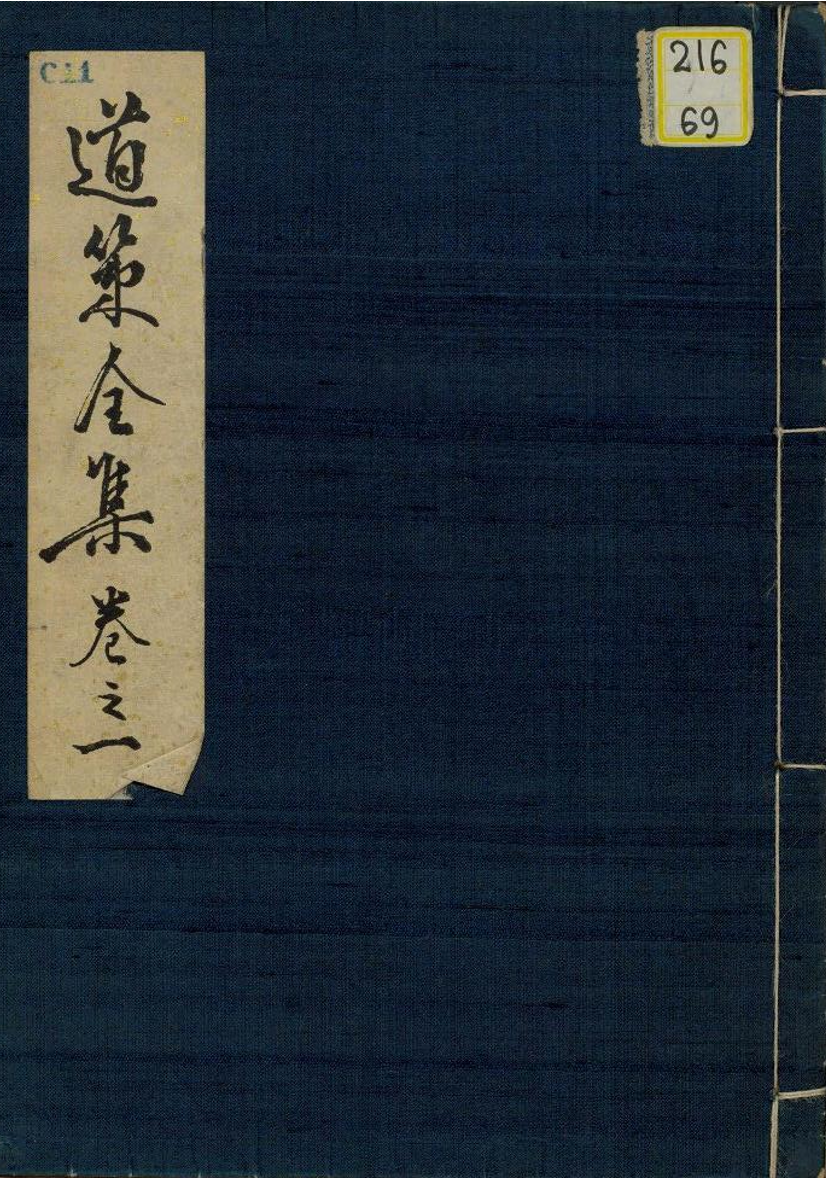 C11
道策全集 巻之一
216
69